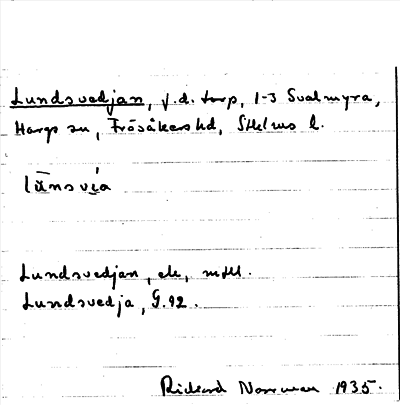 Lundsvedjan, f.d. torp, 1-3 Svalmyra,
Hargs sn, Frösåkers hd, Sthlms l.
lūnsvìa
Lundsvedjan, ek, mtbl.
Lundsvedja, G.92.
Rickard Norrman 1935.